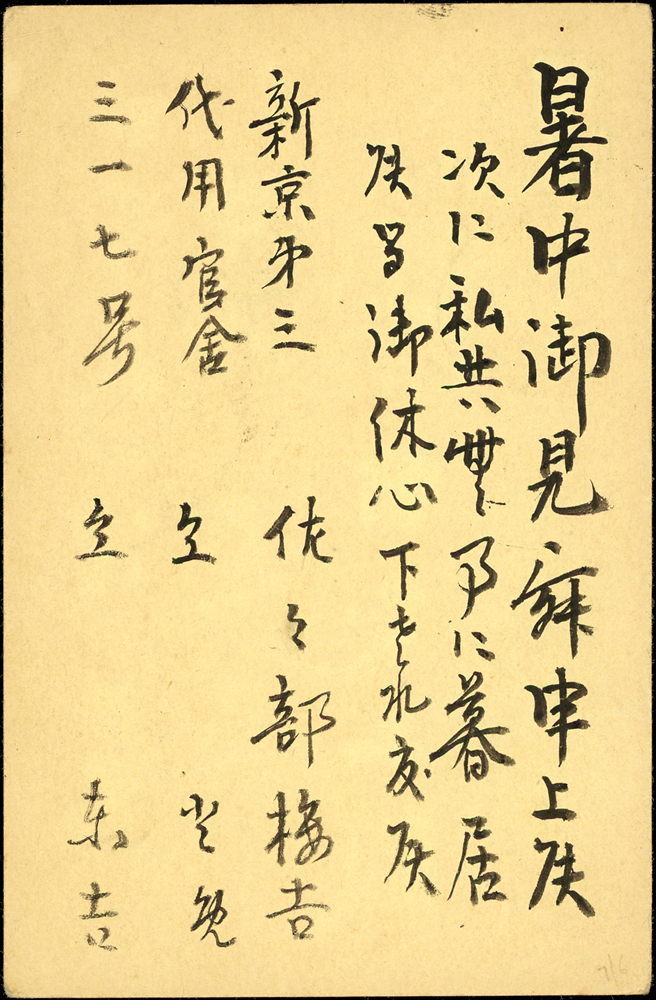 暑中御見舞申上候
次に私共無事に暮居
候間御休心下され度候
新京第三 佐々部梅吉
代用官舎 仝
三一七号 仝 東吉